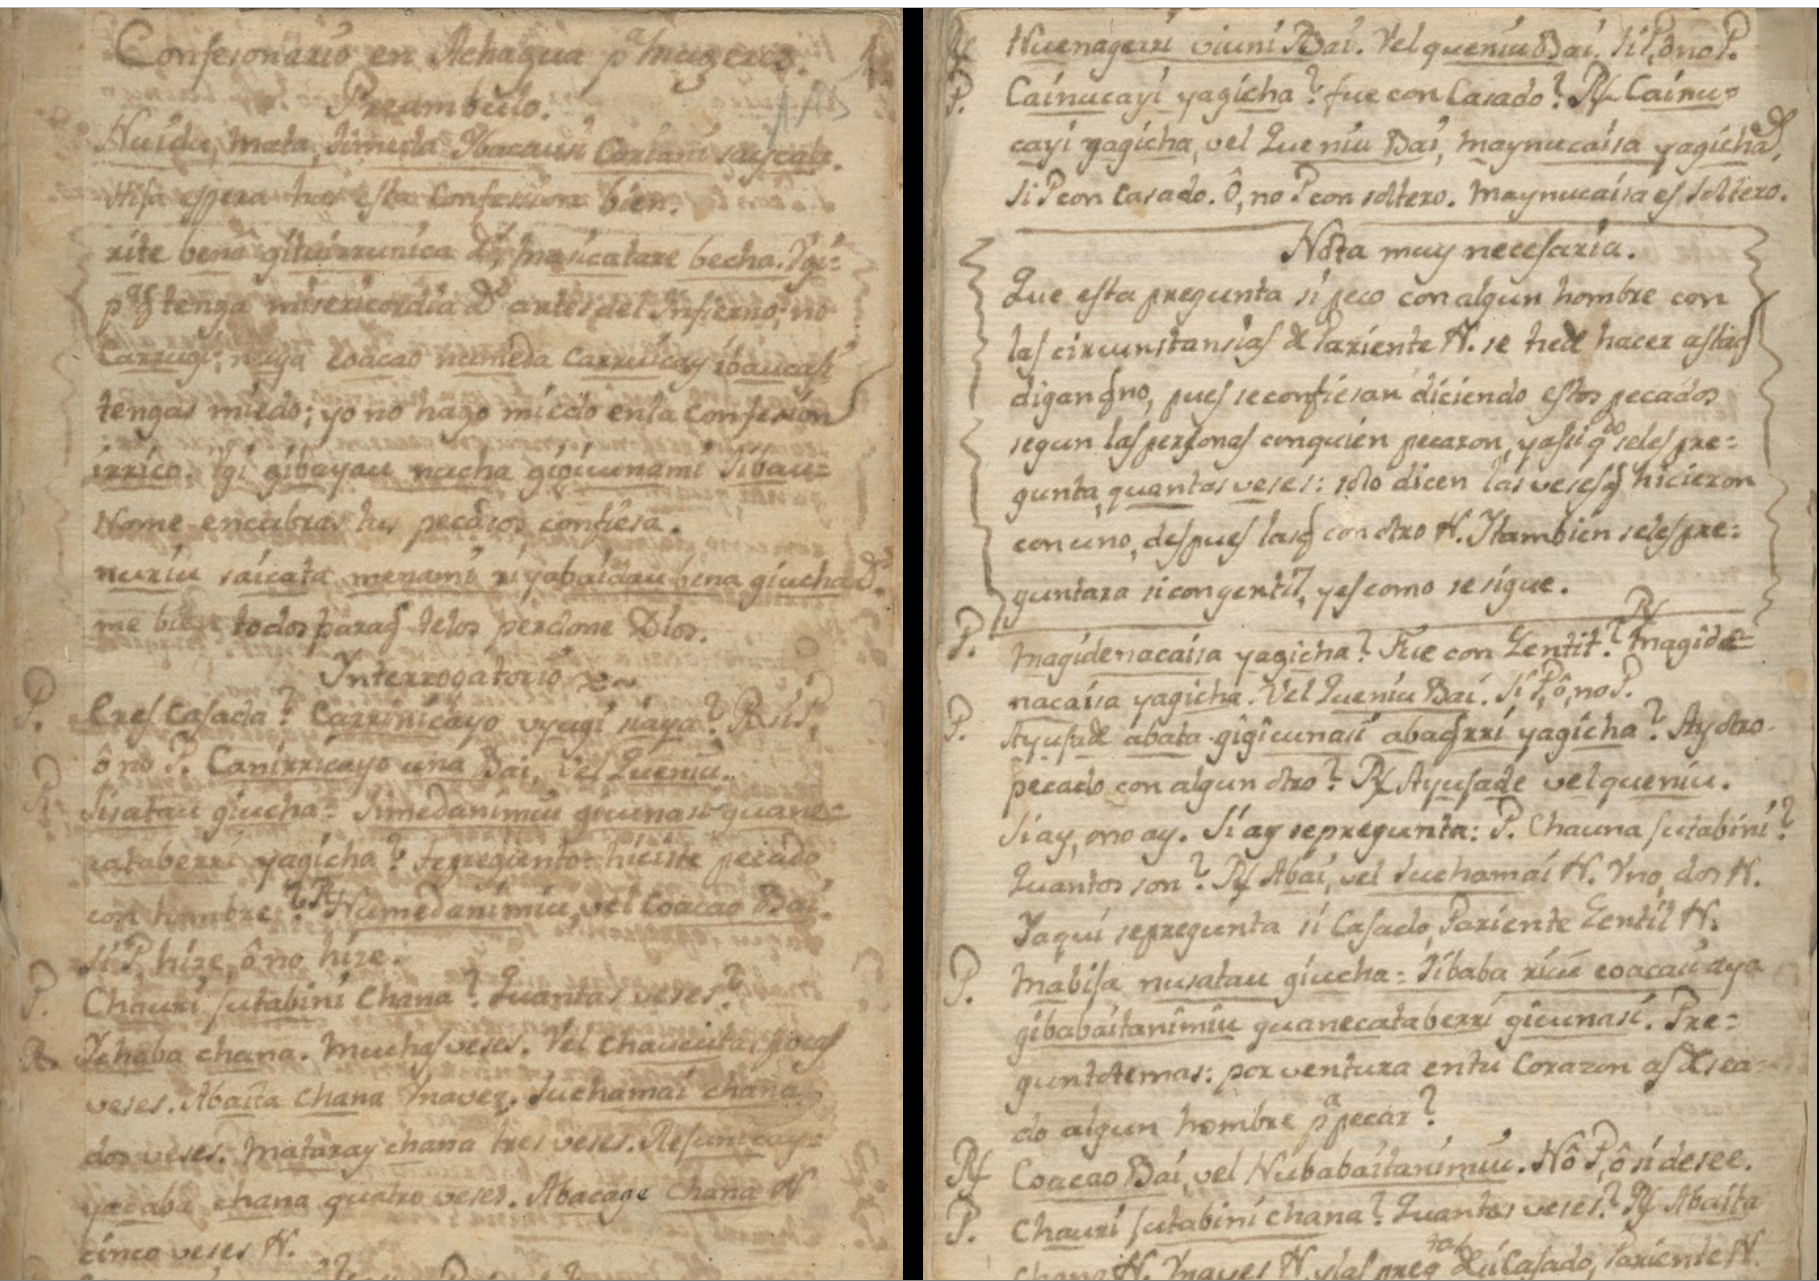 Confesionario en Achagua pª mugeres. 1.
Preambulo.
Nuidu, mata, simeda Ybacausi Cariani saycata.
Hija espera has esta Confesion bien.
rite bena gituirrunica Dˢ, masicatare becha. Ygi=
pª q̃ tenga misericordia Dˢ antes del Infierno; no
Carrugi; nuya coacao numeda Carruicay ibaucasi
tengas miedo; yo no hago miedo en la Confesion
irrico. Ygi gibayau nucha giucunami Sibau=
No me encubras tus pecados confiesa.
nuriu saicata menami ri yabaidau bena giucha Dˢ.
me bien todos paraq̃ telos perdone Dios.
Interrogatorio
P. Eres Casada? Carrinicayo uyagi siaya? R. si P,
ô no P. Canirricayo una Bai, vel Queniu.
P. Sisatau giucha= Simedanimiu gicunasi guane=
cataberri yagicha? te pregunto hiciste pecado
con hombre? R Numedanimiu, vel Coacao Bai.
Si P, hize, ô no hize.
P. Chauri sutabini Chana? Quantas veses?
R. Ychaba chana. Muchas veses. Vel Chaucuita, pocas
veses. Abaita chana Vna vez. Suchamai chana
dos veses. Mataray chana tres veses.
yacaba chana quatro veses. Abacage chana N
cinco veses N.
Nuenagerri viuni Bai. Vel queniu Bai. Si P, ô no P.
P. Cainucayi yagicha? fue con Casado? R Cainu=
cayi yagicha, vel Queniu Bai, maynucaisa yagicha,
Si P con casado. Ô, no P con soltero. Maynucaisa es soltero.
Nota muy necesaria.
Que esta pregunta si peco con algun hombre con
las circunstansias de Pariente N. se hede hacer astaq̃
digan q̃ no, pues se confiesan diciendo estos pecados
segun las personas conquien pecaron, y asi qᵈᵒ seles pre=
gunta quantas veses: solo dicen las veses q̃ hicieron
con uno, despues las q̃ con otro N. Y tambien seles pre=
guntara si con gentil, y es como se sigue.
P. Magidenacaisa yagicha? Fue con Gentil? R Magide=
nacaisa yagicha. Vel Queniu Bai. Si P, ô, no P.
P. Ayusade abata gigicunasi abaq̃rri yagicha? Ay otro
pecado con algun otro? R Ayusade vel queniu.
Si ay, ono ay. Si ay sepregunta: P. Chauna sutabini?
Quantos son? R Abai, vel Suchamai N. Vno, dos N.
Yaqui sepregunta si Casado, Pariente Gentil N.
P. Mabisa nusatau giucha= Sibaba ricu coacau aya
gibabaitanimiu guanecataberri gicunasi. Pre=
guntotemas: por ventura en tu Corazon as desea=
do algun hombre pª pecar?
R Coacao Bai, vel Nubabaitanimiu. Nô P, ô si desee.
P. Chauri sutabini chana? Quantas veses? R Abaita
chana N. Vna ves N. y las preg tas de si Casado, Pariente N.